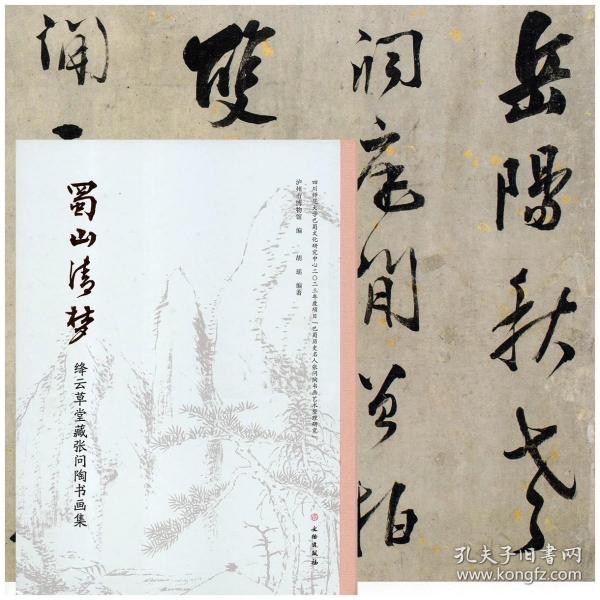 岳陽秋
洞庭間
雙
蜀山清梦
绛云草堂藏张问陶书画集
四川师范大学巴蜀文化研究中心二〇二三年度项目「巴蜀历史名人张问陶书画艺术整理研究」
泸州市博物馆 编 胡瑶 编著
文物出版社
孔夫子旧书网
www.kongfz.com